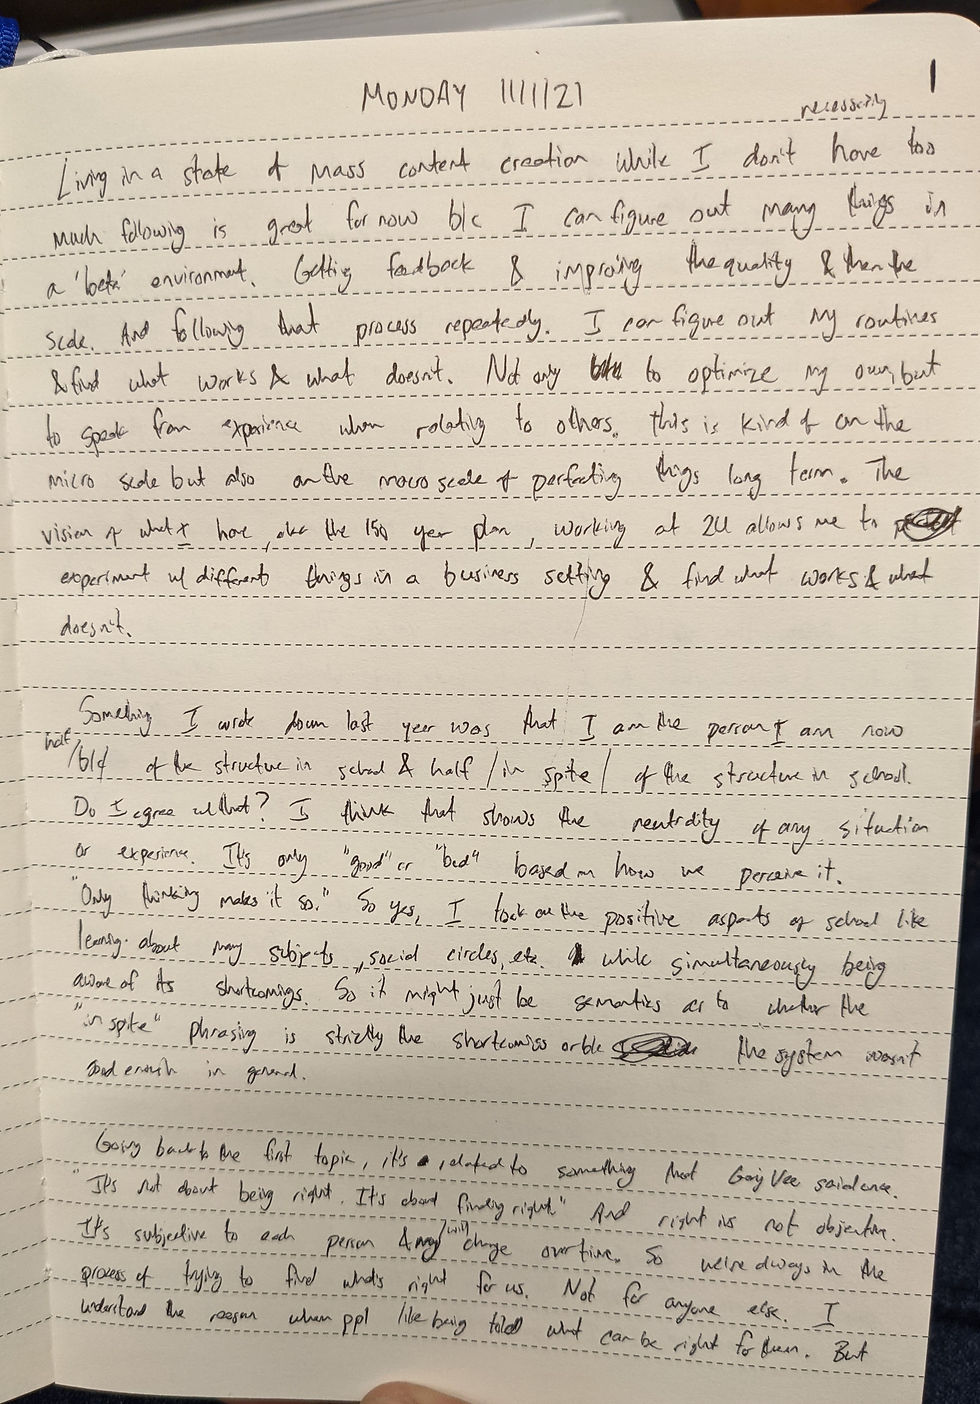 1
MONDAY 11/1/21
necessarily
Living in a state of mass content creation while I don't have too
much following is great for now b/c I can figure out many things in
a 'beta' environment. Getting feedback & improving the quality & then the
scale. And following that process repeatedly. I can figure out my routines
& find what works & what doesn't. Not only to optimize my own, but
to speak from experience when relating to others. This is kind of on the
micro scale but also on the macro scale of perfecting things long term. The
vision of what I have, aka the 150 year plan, working at 2U allows me to
experiment w/ different things in a business setting & find what works & what
doesn't.
Something I wrote down last year was that I am the person I am now
half
/b/c of the structure in school & half /in spite/ of the structure in school.
Do I agree w/ that? I think that shows the neutrality of any situation
or experience. It's only "good" or "bad" based on how we perceive it.
"Only thinking makes it so." So yes, I took on the positive aspects of school like
learning about many subjects, social circles, etc. while simultaneously being
aware of its shortcomings. So it might just be semantics as to whether the
"in spite" phrasing is strictly the shortcomings or b/c the system wasn't
good enough in general.
Going back to the first topic, it's related to something that Gary Vee said once.
"It's not about being right. It's about finding right." And right is not objective.
will
It's subjective to each person & change over time. So we're always in the
process of trying to find what's right for us. Not for anyone else. I
understand the reason when ppl like being told what can be right for them. But